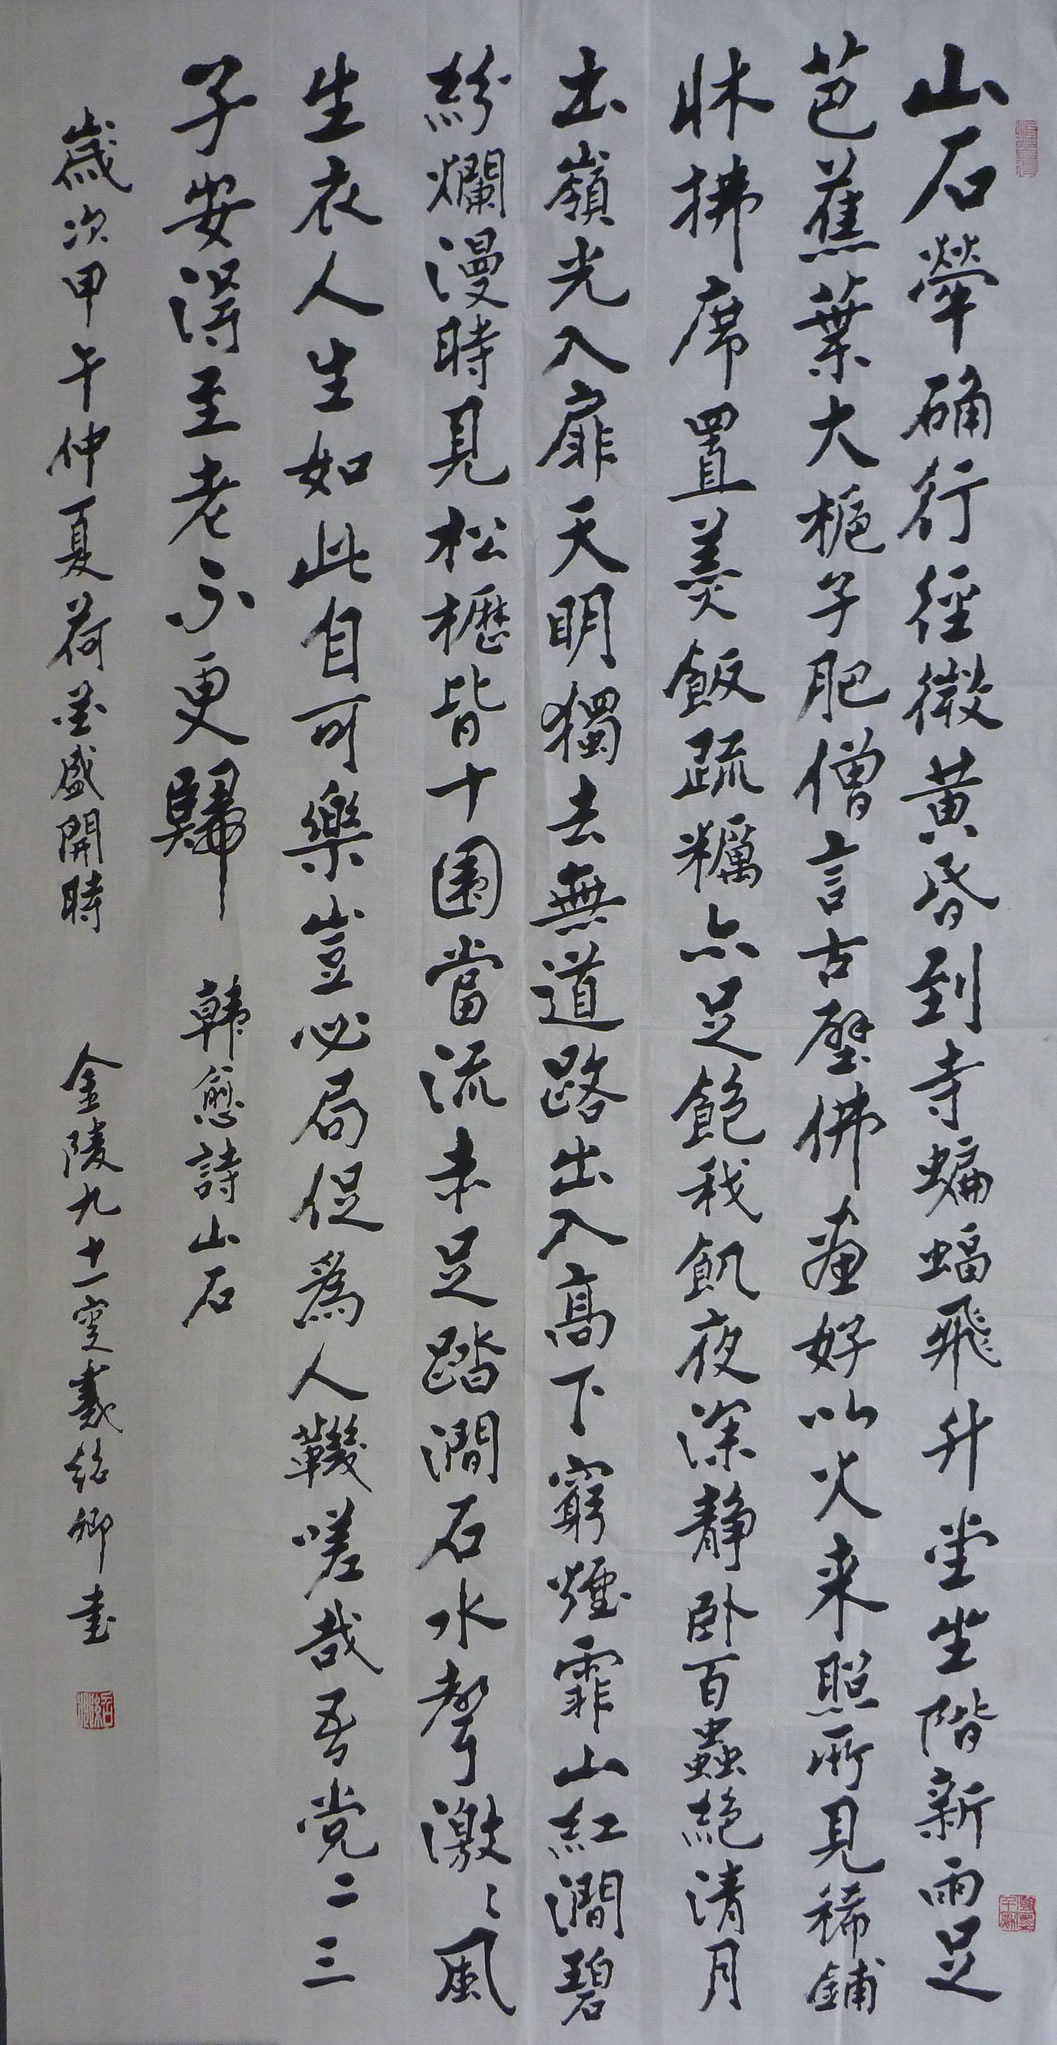 山石犖确行徑微黃昏到寺蝙蝠飛升堂坐階新雨足
芭蕉葉大梔子肥僧言古壁佛畫好以火来照所見稀鋪
牀拂席置羹飯疏糲亦足飽我飢夜深静卧百蟲絶清月
出嶺光入扉天明獨去無道路出入高下窮煙霏山紅澗碧
紛爛漫時見松櫪皆十圍當流赤足踏澗石水聲激〻風
生衣人生如此自可樂豈必局促為人鞿嗟哉吾党二三
子安得至老不更歸
韓愈詩山石
歲次甲午仲夏荷花盛開時
金陵九十一叟戴紹卿書